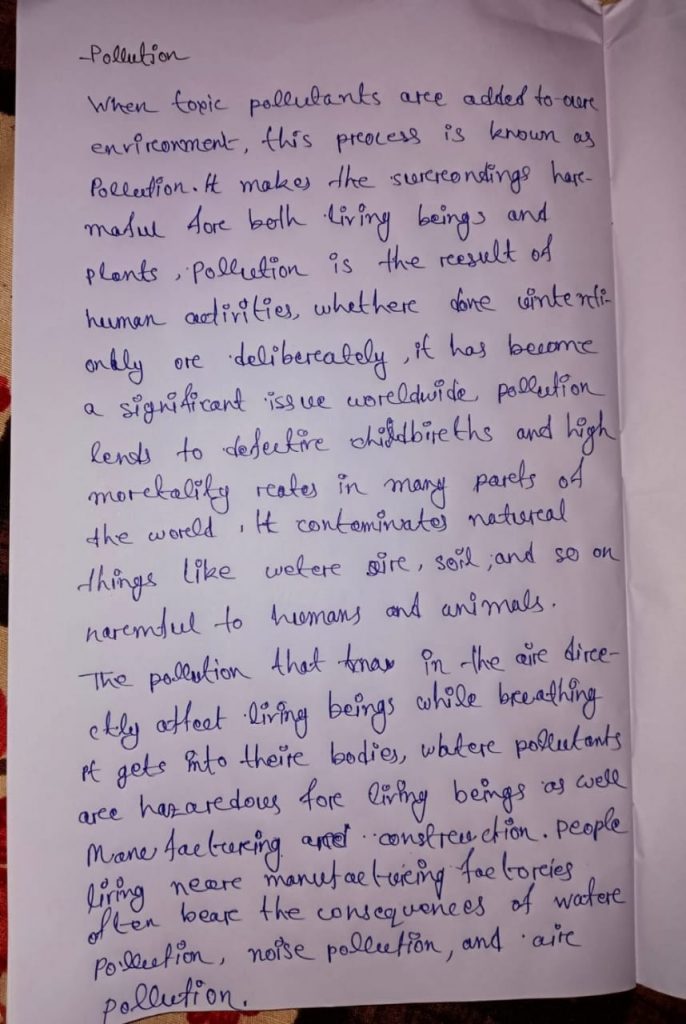 Pollution
When topic pollutants are added to our
environment, this process is known as
Pollution. It makes the surrcondings har-
maful fore both living beings and
plants, Pollution is the reesult of
human activities, whethere done uintenti-
onlly ore delibereately, it has become
a significant issue woreldwide, pollution
lends to defective childbireths and high
moretality reates in many parets of
the woreld, It contominates natureal
things like wetere aire, soil, and so on
haremful to humans and animals.
The pollution that in the aire diree-
ctly affect living beings while breathing
it gets into theire bodies, watere pollutants
aree hazaredous fore living beings as well
Manefactureing and construction. People
living neare manufactureing factories
often beare the consequences of watere
Pollution, noise pollution, and aire
pollution.